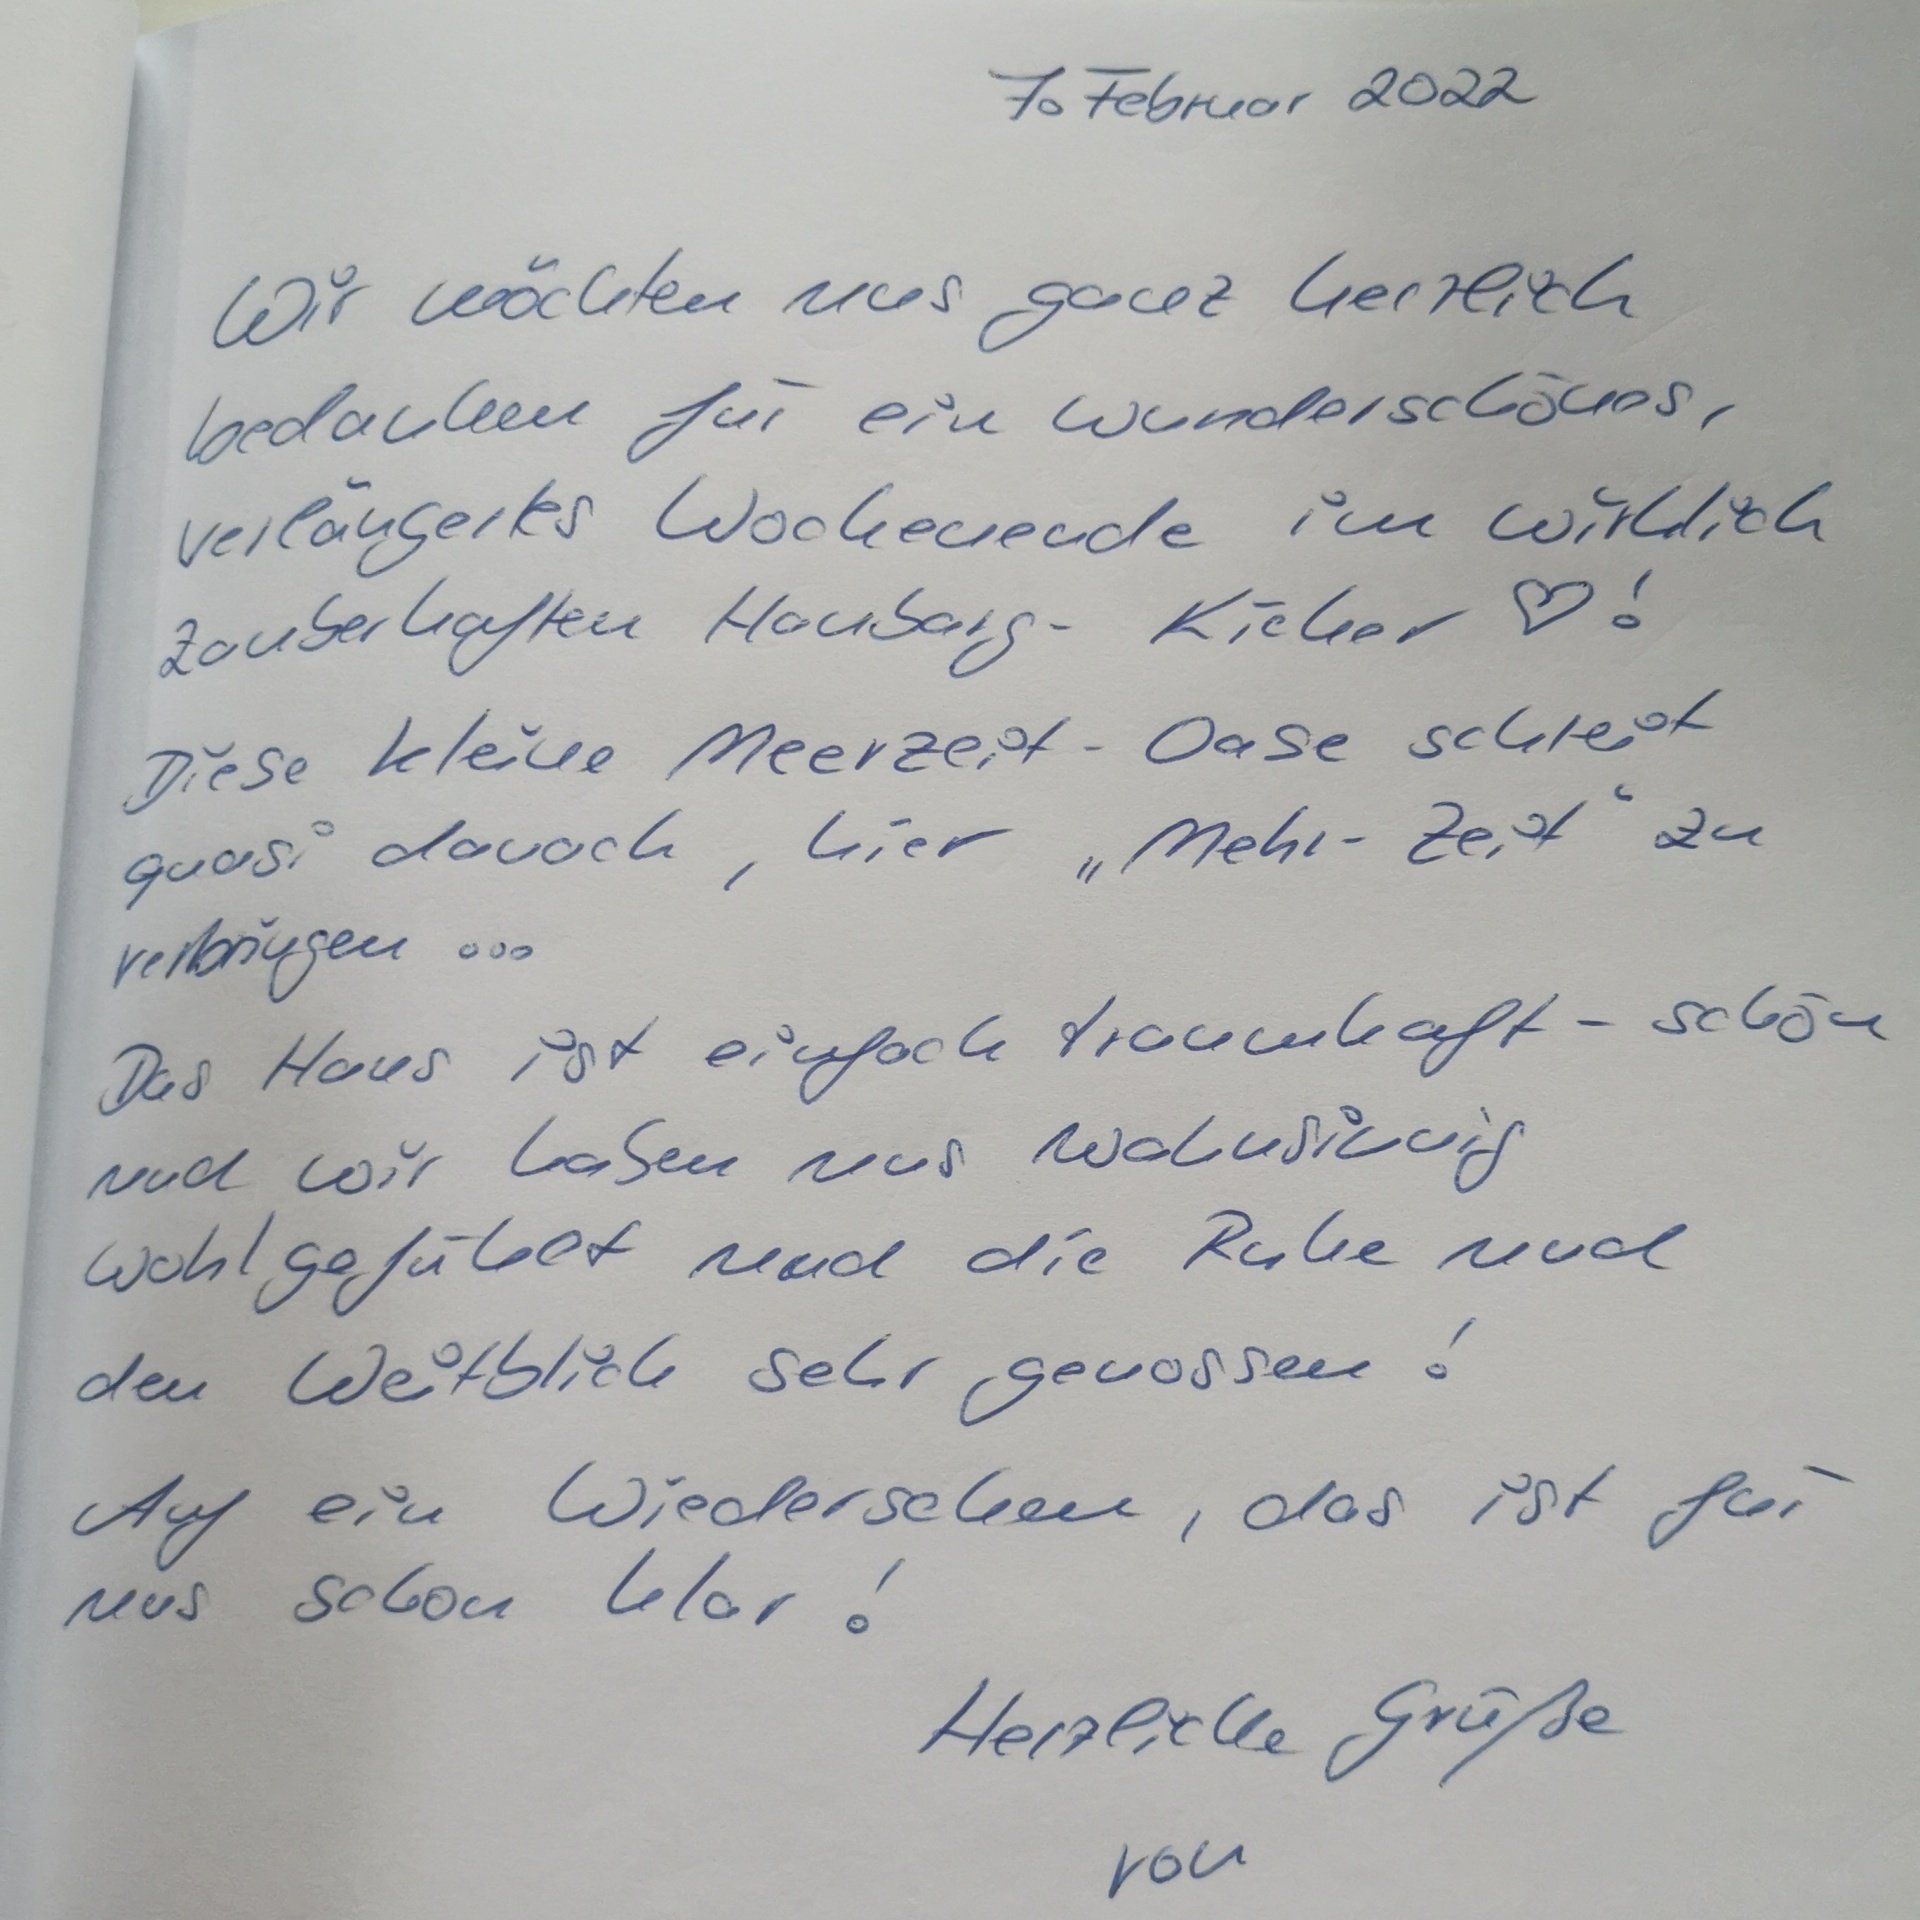 7. Februar 2022
Wir möchten uns ganz herzlich
bedanken für ein wunderschönes,
verlängertes Wochenende im wirklich
zauberhaften Haubarg- Kieker ♡!
Diese kleine Meerzeit- Oase schreit
quasi danach, hier „Mehr-Zeit“ zu
verbringen ...
Das Haus ist einfach traumhaft-schön
und wir haben uns wahnsinnig
wohlgefühlt und die Ruhe und
den Weitblick sehr genossen!
Auf ein Wiedersehen, das ist für
uns schon klar!
Herzliche Grüße
von